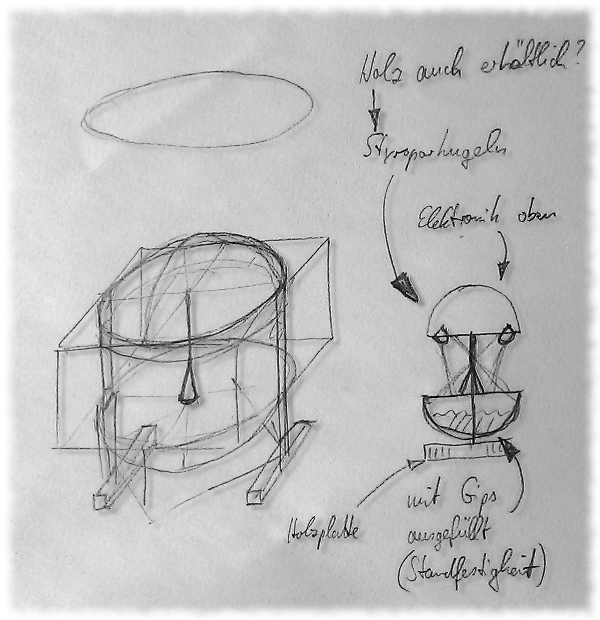 Holz auch erhältlich?
Styroporkugeln
Elektronik oben
Holzplatte
mit Gips
ausgefüllt
(Standfestigkeit)